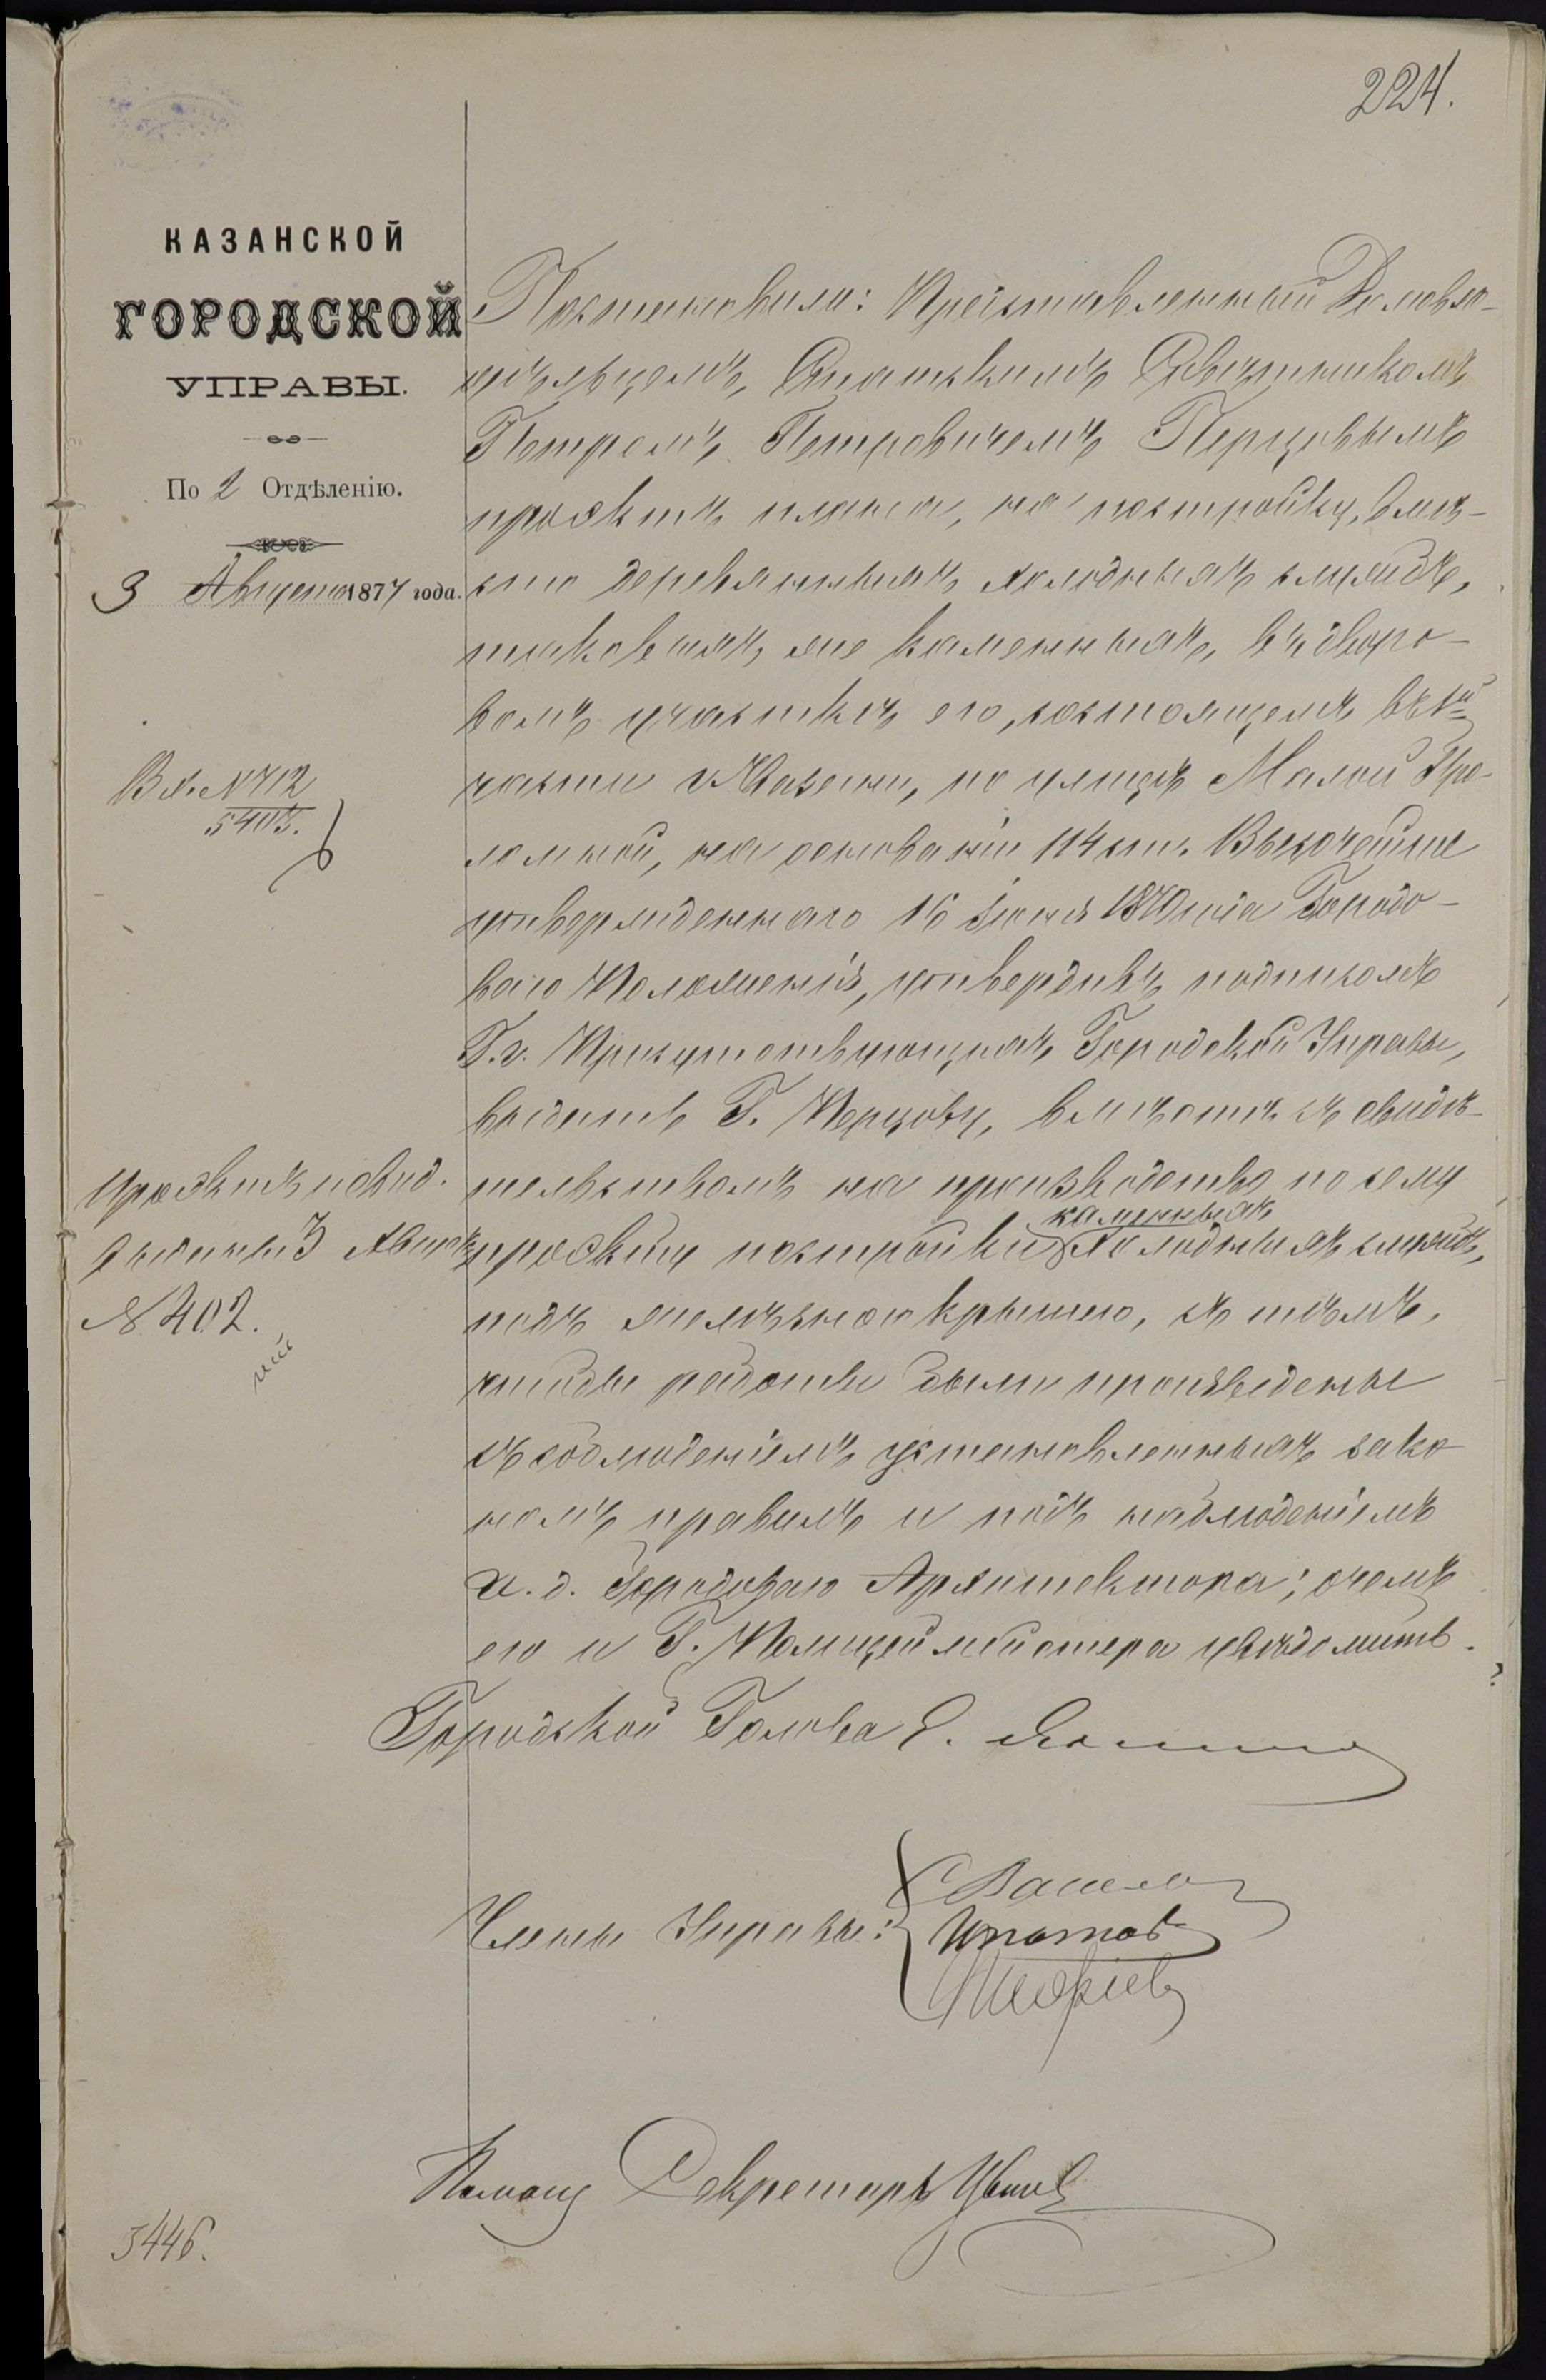 224.
КАЗАНСКОЙ
ГОРОДСКОЙ
УПРАВЫ.
По 2 Отдѣленію.
3 Августа 1877 года.
Вх. № 712
5403.
Проэктъ и свид.
выданы 3 Августа
№ 402.
Постановили: Представленный Домовла-
дѣльцемъ, Спасскимъ Совѣтникомъ
Петромъ Петровичемъ Перцовымъ
проэктъ плана, на постройку, вмѣ-
сто деревянныхъ холодныхъ службъ,
таковыхъ же каменныхъ, въ дворо-
вомъ участкѣ его, состоящемъ въ 1й
части г. Казани, по улицѣ Малой Про-
ломной, на основаніи 114 ст. Высочайше
утвержденнаго 16 Іюня 1870 года Городо-
ваго Положенія, утвердивъ подписомъ
Г.г. Присутствующихъ Городской Управы,
выдать Г. Перцову, вмѣстѣ съ свидѣ-
тельствомъ на производство по сему
каменныхъ
проэкту постройки холодныхъ службъ,
подъ желѣзною крышею, съ тѣмъ,
чтобы работы были произведены
съ соблюденіемъ установленныхъ зако-
номъ правилъ и подъ наблюденіемъ
и. д. Городоваго Архитектора; о чемъ
его и Г. Полицеймейстера увѣдомить.
Городской Голова
Члены Управы:
Ипатов
Помощ Секретаря
5446.